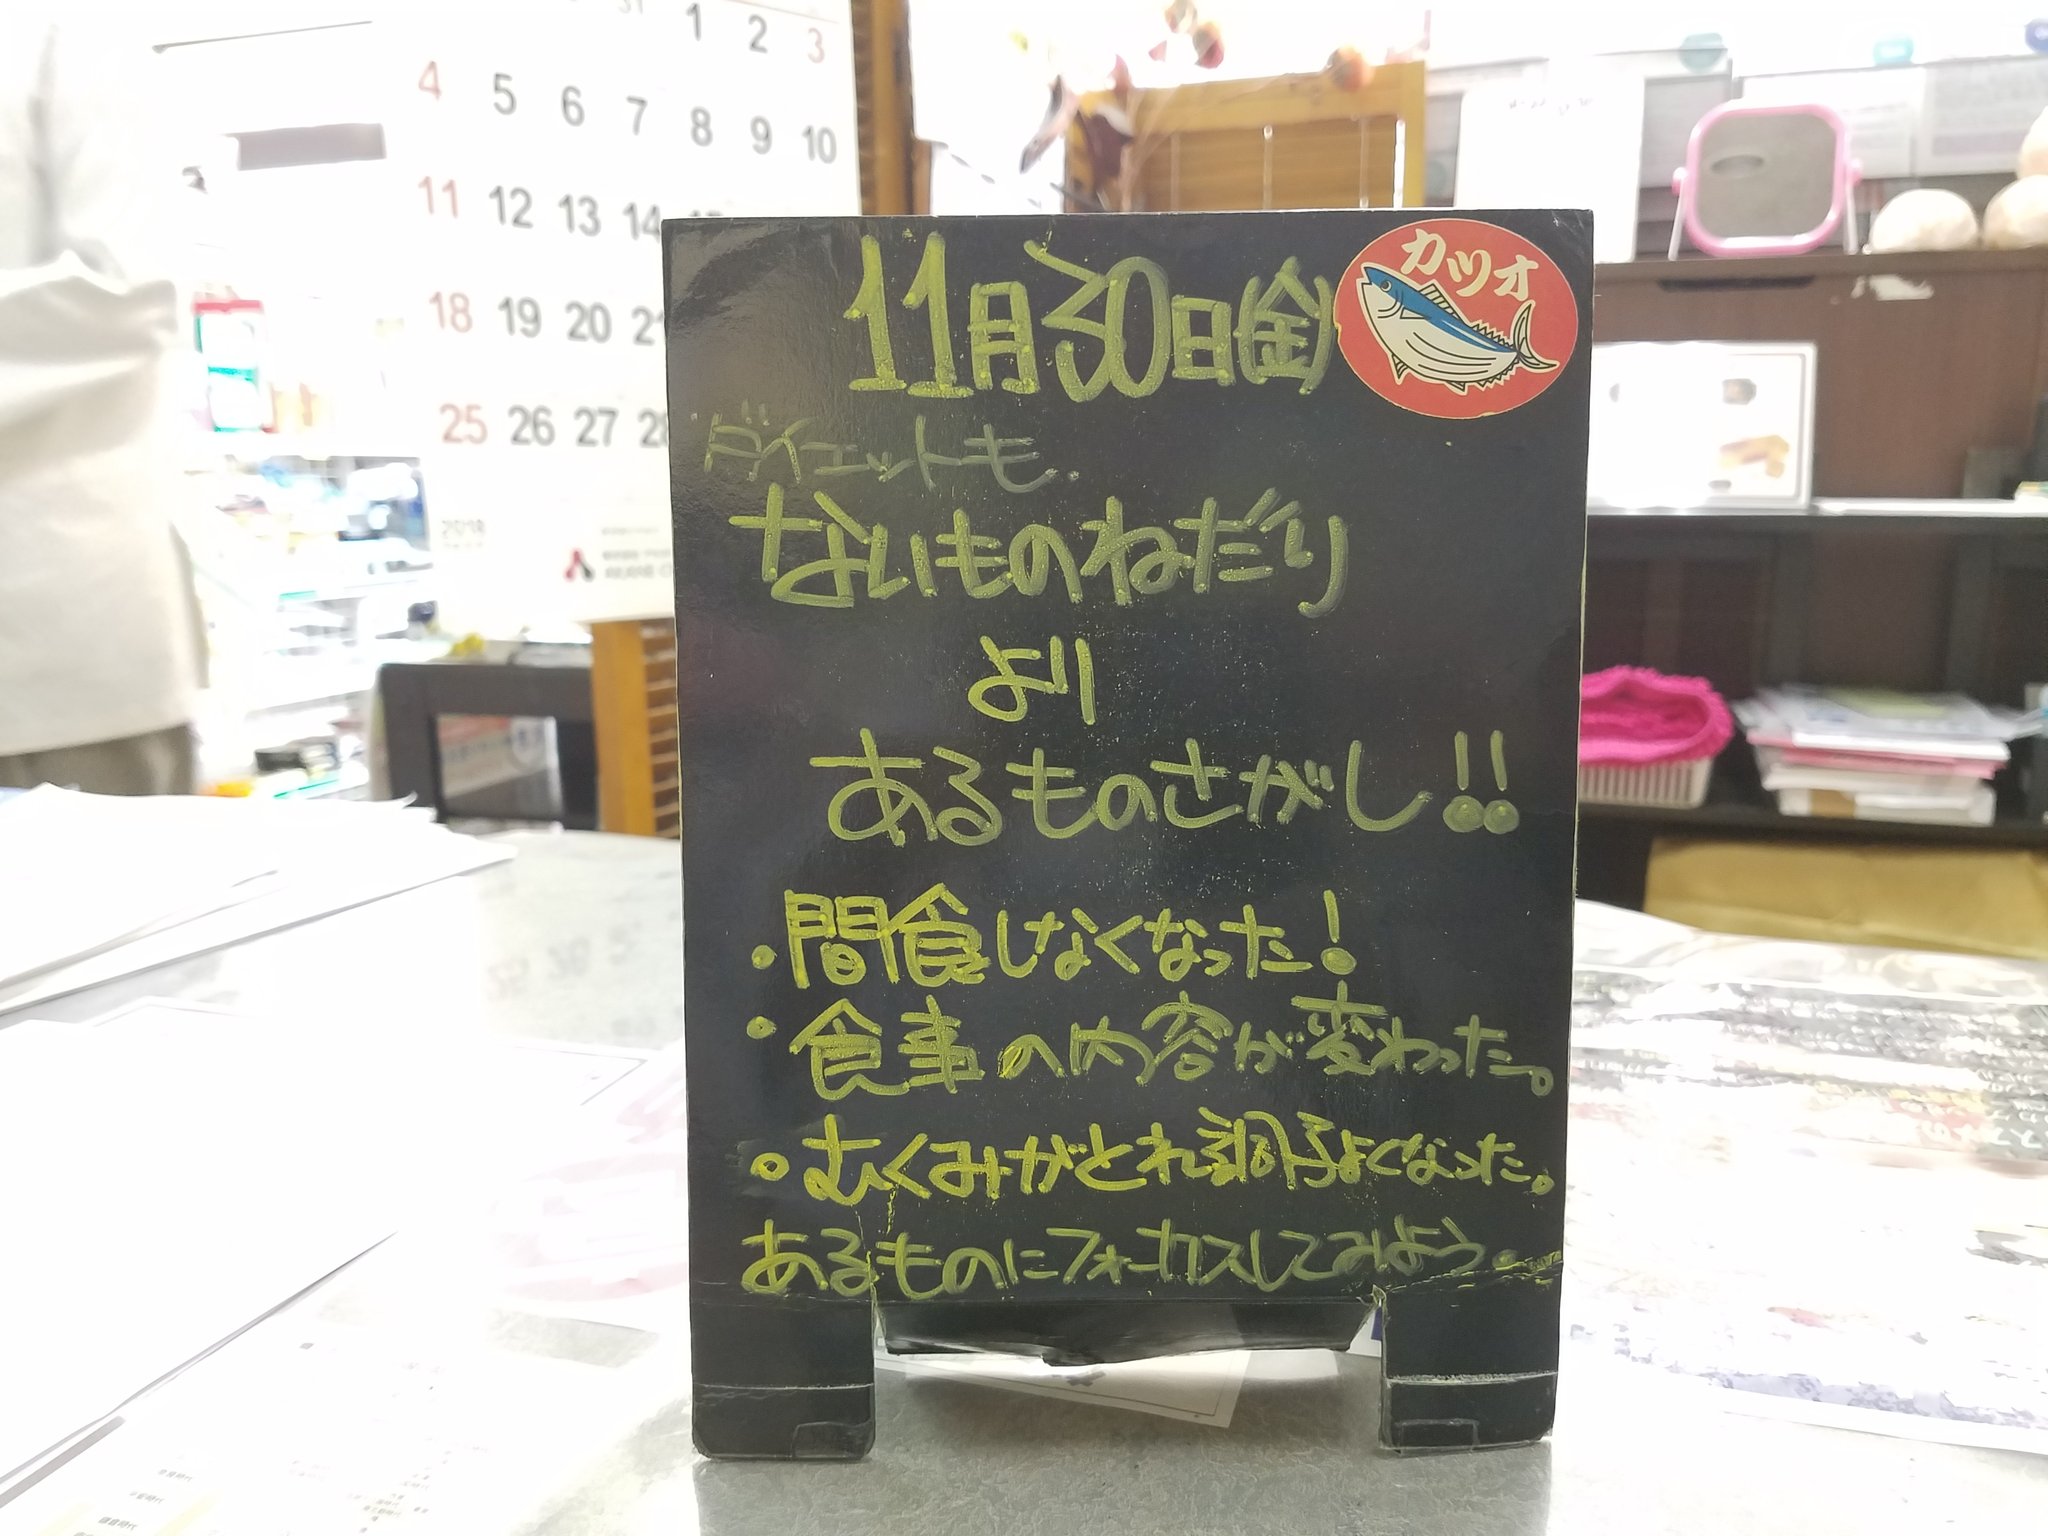 1 2 3
4 5 6 7 8 9 10
11 12 13 14
18 19 20 21
25 26 27 28
2018
11月30日(金)
カツオ
ダイエットも
ないものねだり
より
あるものさがし!!
・間食しなくなった!
・食事の内容が変わった。
・むくみがとれ調子よくなった。
あるものにフォーカスしてみよう。